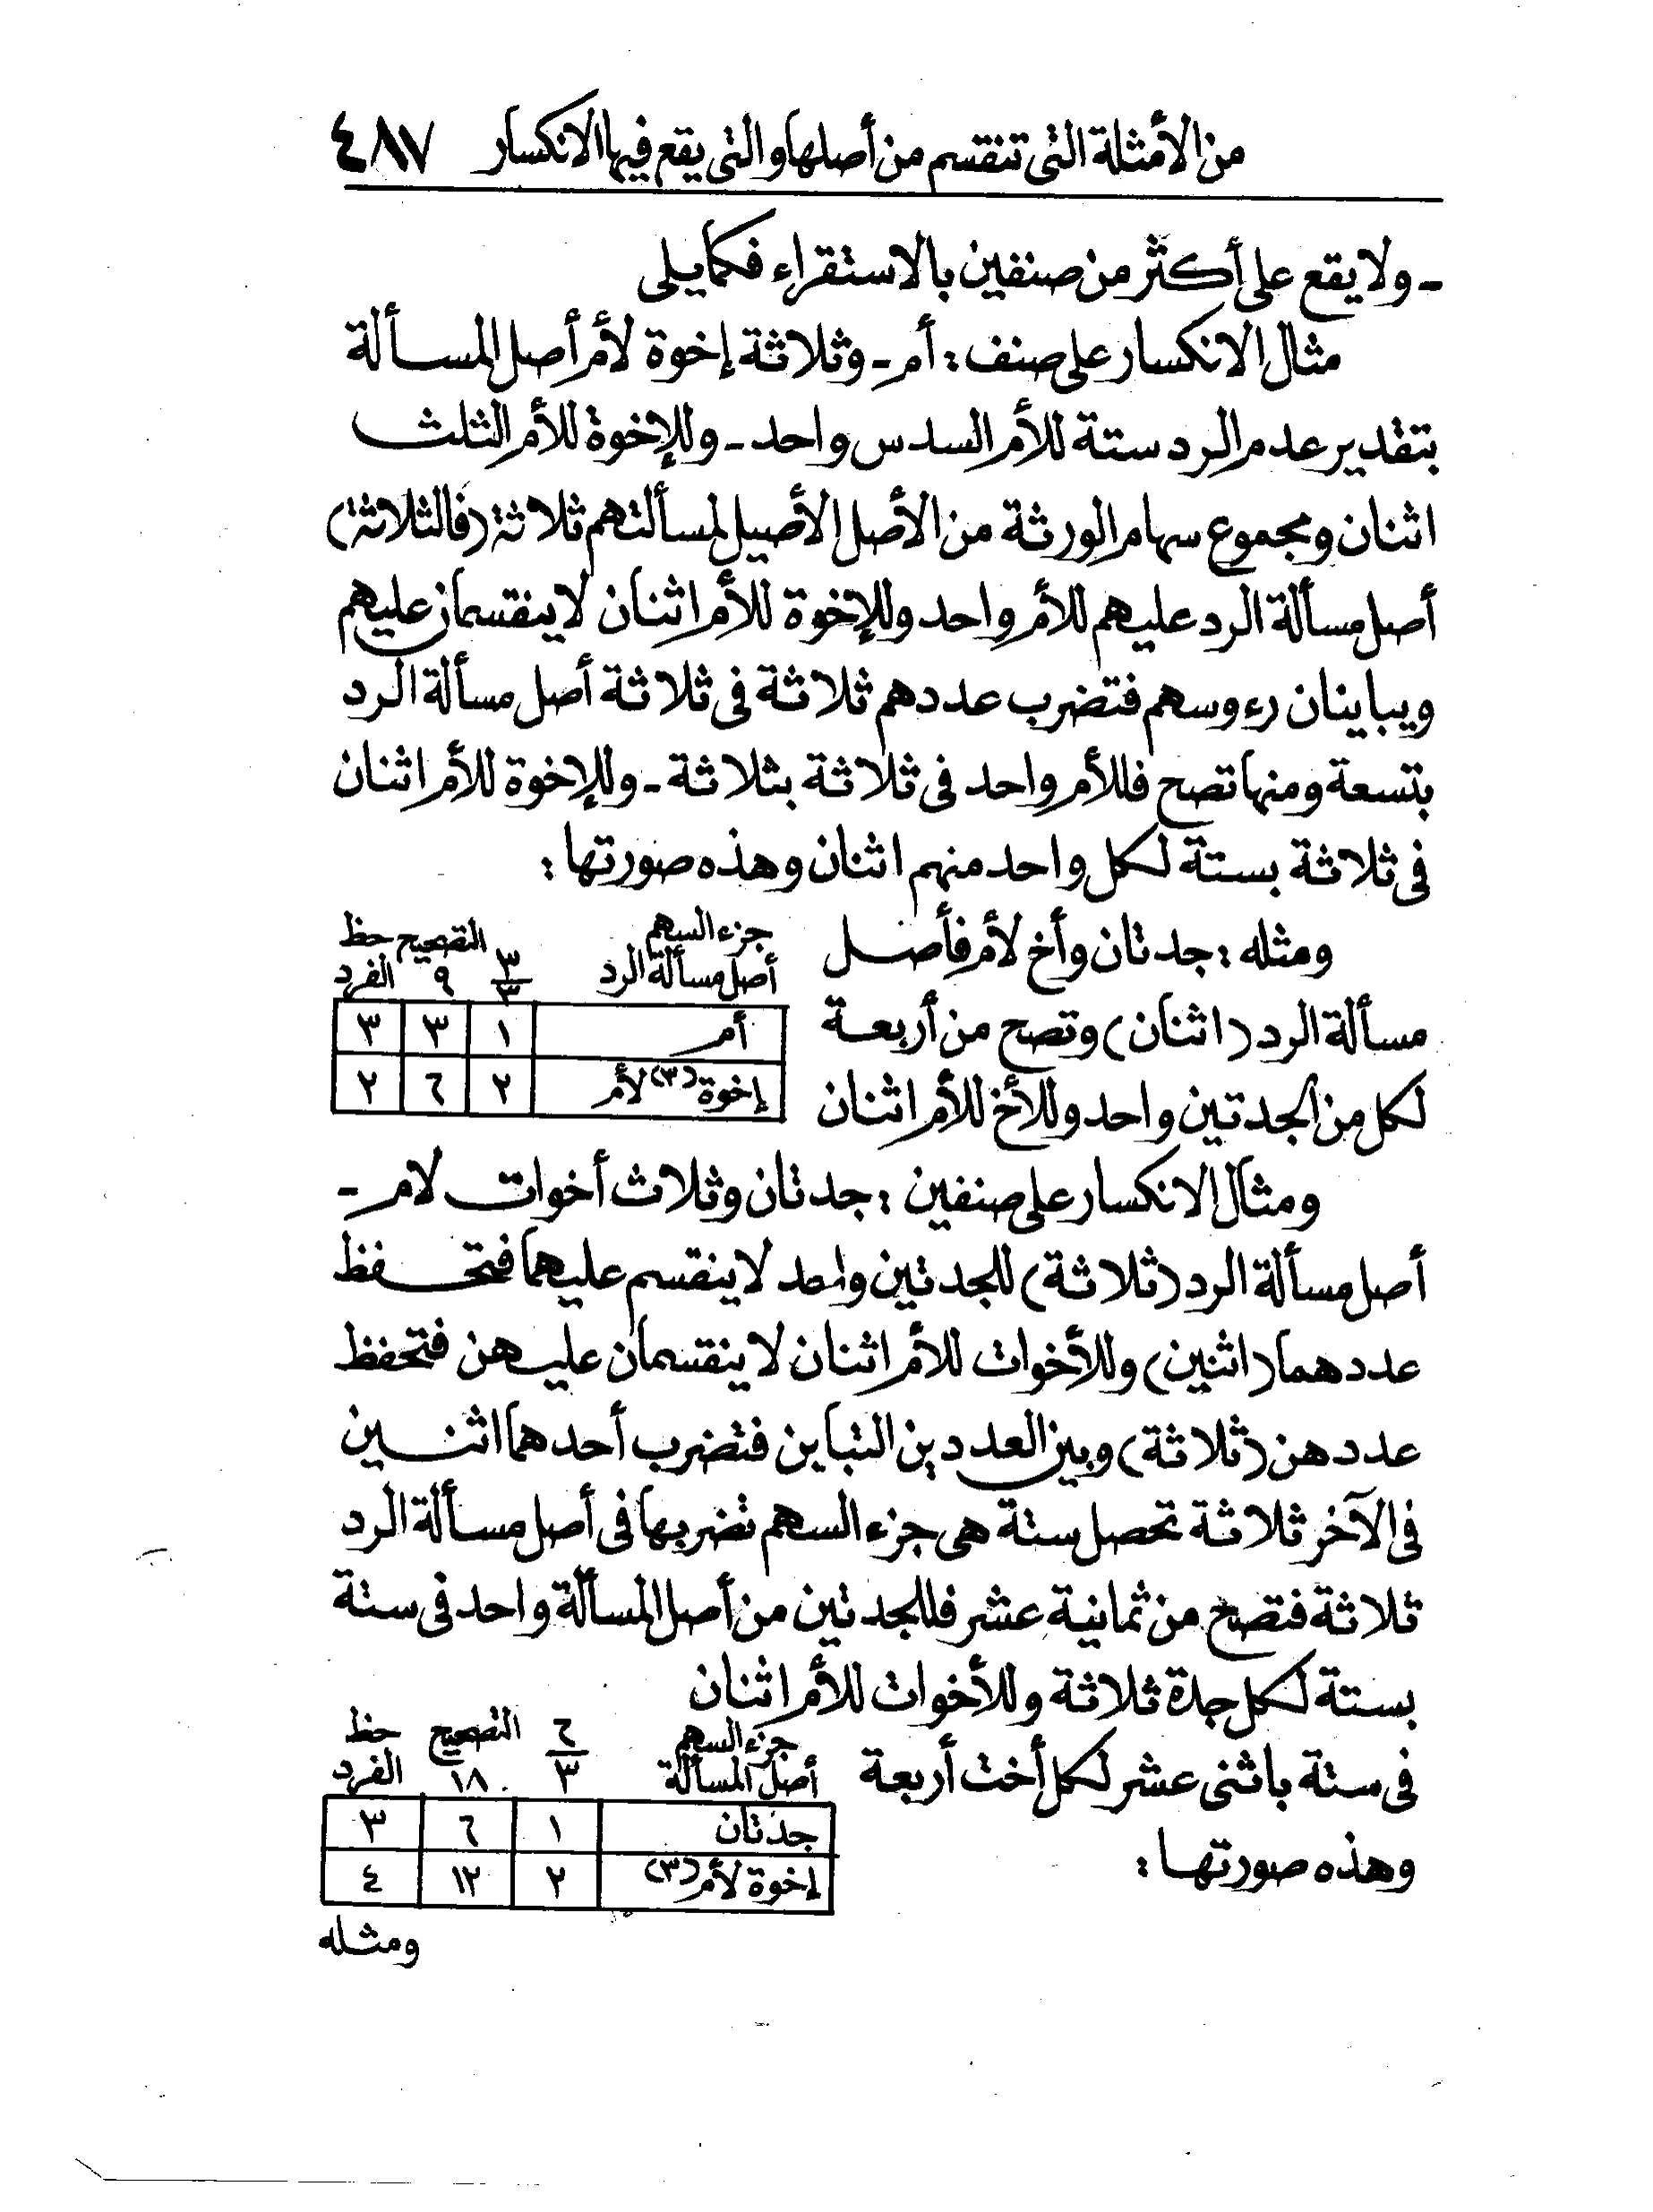 من الأمثلة التى تنقسم من أصلها والتى يقع فيها الانكسار ٤٨٧
ـ ولا يقع على أكثر من صنفين بالاستقراء فكما يلى
مثال الانكسار على صنف : أم ـ وثلاثة إخوة لأم أصل المسألة
بتقدير عدم الرد ستة للأم السدس واحد ـ وللإخوة للأم الثلث
اثنان ومجموع سهام الورثة من الأصل الأصيل لمسألتهم ثلاثة (فالثلاثة)
أصل مسألة الرد عليهم للأم واحد وللإخوة للأم اثنان لا ينقسمان عليهم
ويباينان رءوسهم فتضرب عددهم ثلاثة فى ثلاثة أصل مسألة الرد
بتسعة ومنها تصح فللأم واحد فى ثلاثة بثلاثة ـ وللإخوة للأم اثنان
فى ثلاثة بستة لكل واحد منهم اثنان وهذه صورتها :
ومثله : جدتان وأخ لأم فأصل
مسألة الرد (اثنان) وتصح من أربعة
لكل من الجدتين واحد وللأخ للأم اثنان
جزء السهم ٣ التصحيح حظ
أصل مسألة الرد ٣ ٩ الفرد
أم ١ ٣ ٣
إخوة (٣) لأم ٢ ٦ ٢
ومثال الانكسار على صنفين : جدتان وثلاث أخوات لام ـ
أصل مسألة الرد (ثلاثة) للجدتين واحد لا ينقسم عليهما فتحفظ
عددهما (اثنين) وللأخوات للأم اثنان لا ينقسمان عليهن فتحفظ
عددهن (ثلاثة) وبين العددين التباين فتضرب أحدهما اثنين
فى الآخر ثلاثة تحصل ستة هى جزء السهم تضربها فى أصل مسألة الرد
ثلاثة فتصح من ثمانية عشر فللجدتين من أصل المسألة واحد فى ستة
بستة لكل جدة ثلاثة وللأخوات للأم اثنان
فى ستة باثنى عشر لكل أخت أربعة
وهذه صورتها :
جزء السهم ٦ التصحيح حظ
أصل المسألة ٣ ١٨ الفرد
جدتان ١ ٦ ٣
إخوة لأم (٣) ٢ ١٢ ٤
ومثله